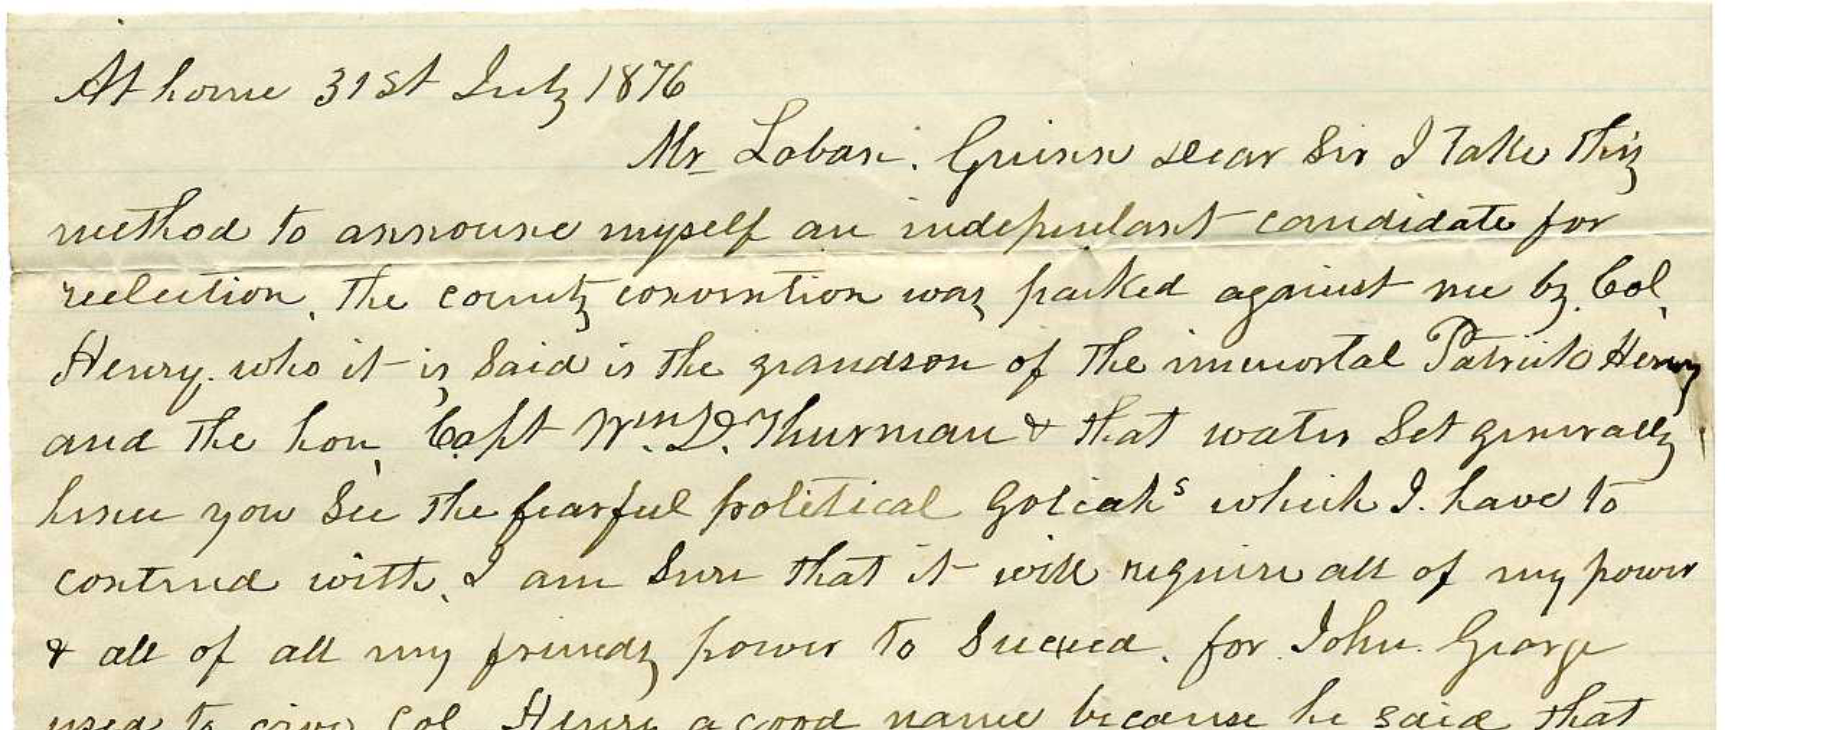 At home 31st July 1876
Mr Laban. Guinn Dear Sir I take this
method to announce myself an independant candidate for
reelection, the county convention was packed against me by Col,
Henry. who it is said is the grandson of the immortal Patrick Henry
and the hon, Capt Wm. D. Thurman & that water set generally
hence you see the fearful political Goliahs which I. have to
contend with. I am sure that it will require all of my power
& all of all my friends power to succeed. for John. George
used to give Col Henry a good name because he said that